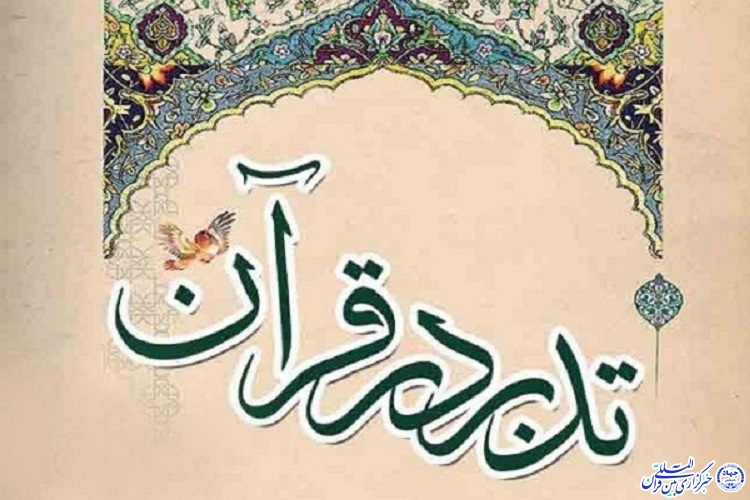 تدبر در قرآن
خبرگزاری بین المللی قرآن
جهاد